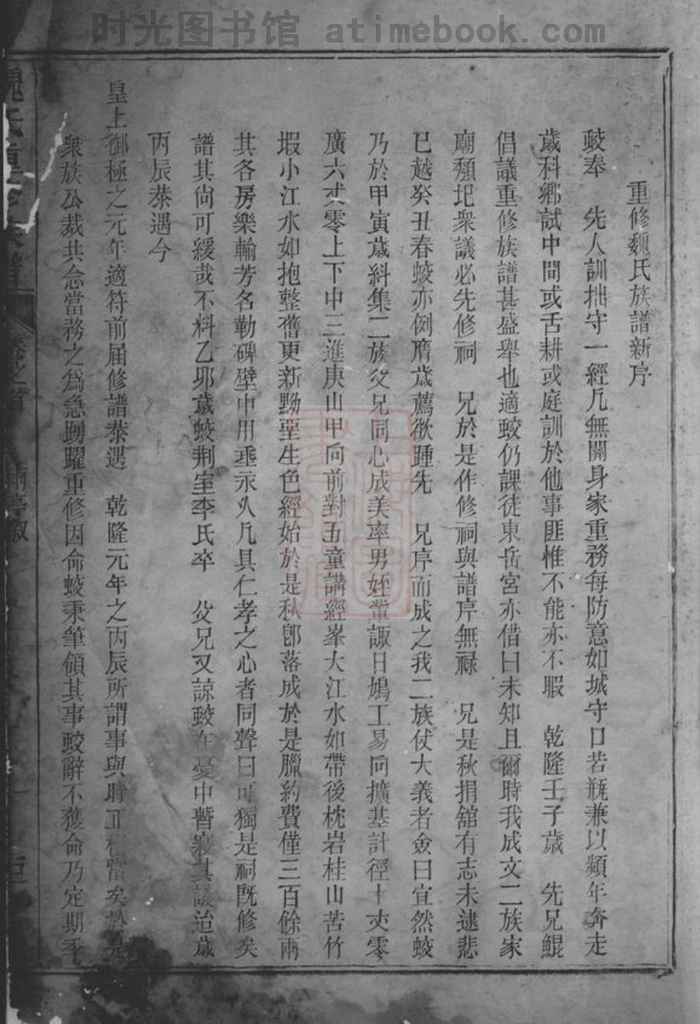 时光图书馆 atimebook.com
重修魏氏族譜新序
蛟奉 先人訓拙守一經凡無關身家重務每防意如城守口若瓶兼以頻年奔走
歲科鄉試中間或舌耕或庭訓於他事匪惟不能亦不暇 乾隆壬子歲 先兄鯤
倡議重修族譜甚盛舉也適蛟仍課徒東岳宮亦借曰未知且爾時我成文二族家
廟頹圮衆議必先修祠 兄於是作修祠與譜序無祿 兄是秋捐舘有志未逮悲
已越癸丑春蛟亦例膺歲薦欲踵先 兄序而成之我二族仗大義者僉曰宜然蛟
乃於甲寅歲糾集二族父兄同心成美率男姪輩諏日鳩工易向擴基計徑十丈零
廣六丈零上下中三進庚山甲向前對五童講經峯大江水如帶後枕岩桂山苦竹
塅小江水如抱整舊更新黝堊生色經始於是秋卽落成於是臘約費僅三百餘兩
其各房樂輸芳名勒碑壁中用垂永久凡具仁孝之心者同聲曰可獨是祠既修矣
譜其尙可緩哉不料乙卯歲蛟荆室李氏卒 父兄又諒蛟在憂中暫寢其議迨歲
丙辰恭遇今
皇上御極之元年適符前届修譜恭遇 乾隆元年之丙辰所謂事與時正相當矣
衆族公裁共念當務之爲急踴躍重修因命蛟秉筆領其事蛟辭不獲命乃定期季
魏氏重修族譜 卷之首